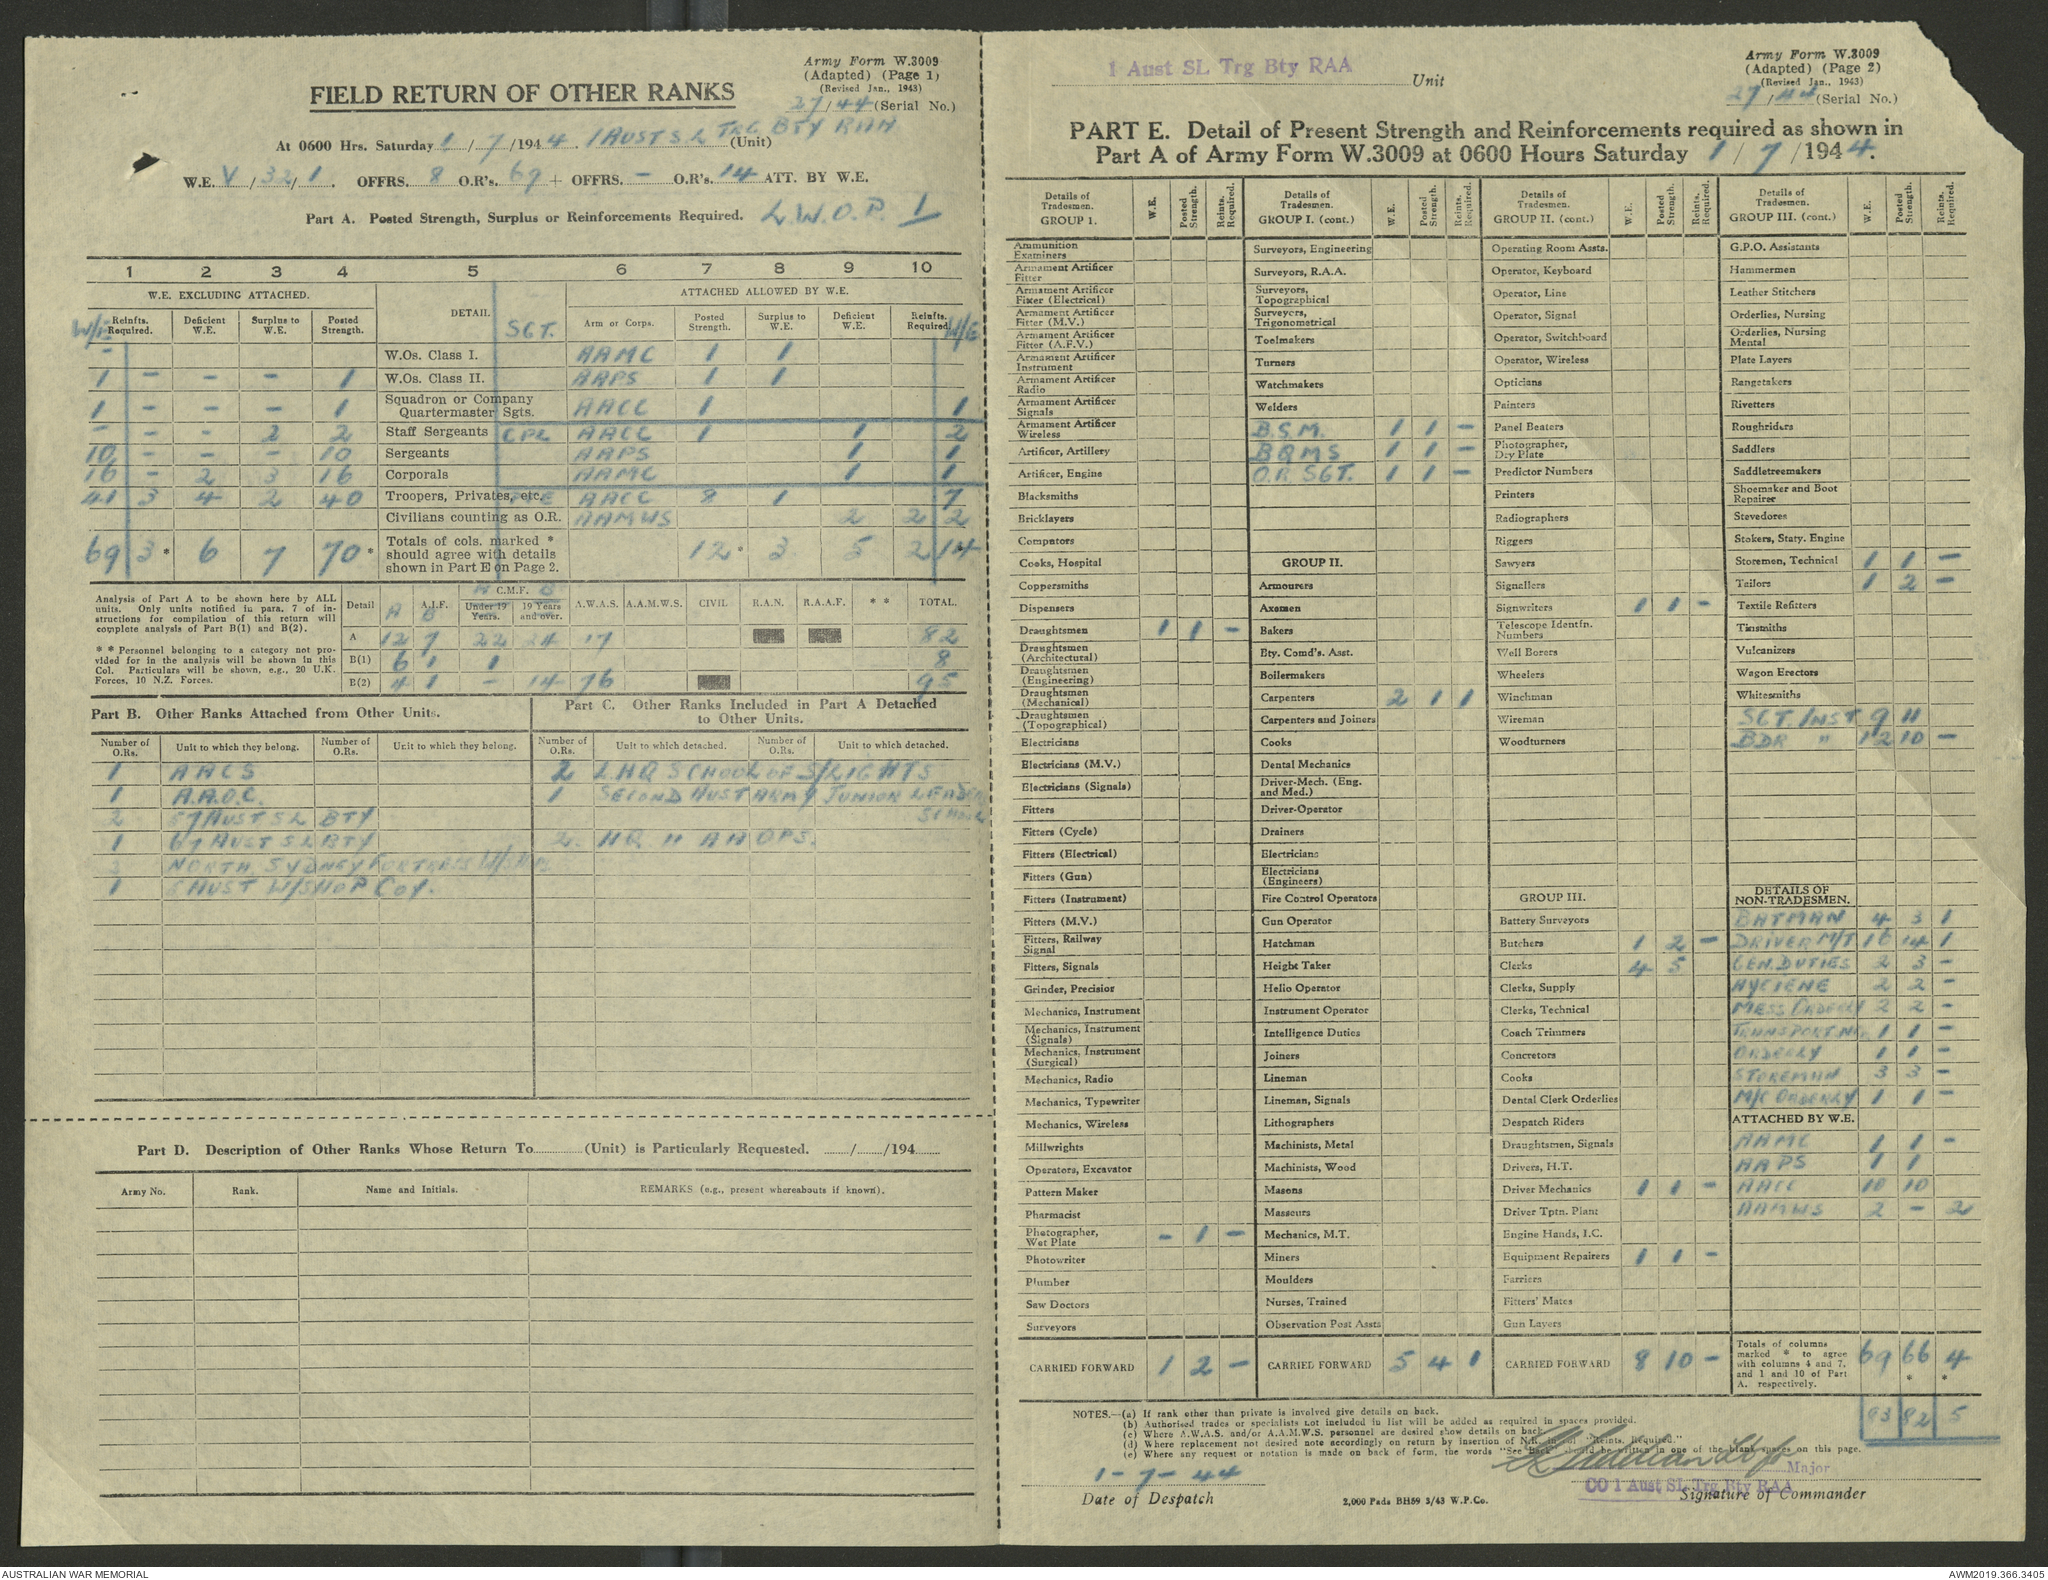 Army Form W.3009
(Adapted) (Page 1)
(Revised Jan., 1943)
FIELD RETURN OF OTHER RANKS
27/44 (Serial No.)
At 0600 Hrs. Saturday 1/7/1944. 1 AUST S L TRG BTY RAA (Unit)
W.E. V/32/1. OFFRS. 8 O.R's. 69 + OFFRS. - O.R's. 14 ATT. BY W.E.
Part A. Posted Strength, Surplus or Reinforcements Required. L.W.O.P. 1
1 2 3 4 5 6 7 8 9 10
W.E. EXCLUDING ATTACHED. DETAIL. ATTACHED ALLOWED BY W.E.
W/E Reinfts. Required. Deficient W.E. Surplus to W.E. Posted Strength. SGT. Arm or Corps. Posted Strength. Surplus to W.E. Deficient W.E. Reinfts. Required. W/E
- W.Os. Class I. AAMC 1 1
1 - - - 1 W.Os. Class II. AAPS 1 1
1 - - - 1 Squadron or Company Quartermaster Sgts. AACC 1 1
- - - 2 2 Staff Sergeants CPL AACC 1 1 2
10 - - - 10 Sergeants AAPS 1 1
16 - 2 3 16 Corporals AAMC 1 1
41 3 4 2 40 Troopers, Privates, etc. PTE AACC 8 1 7
Civilians counting as O.R. AAMWS 2 2 2
69 3 * 6 7 70 * Totals of cols. marked * should agree with details shown in Part E on Page 2. 12 * 3 5 2 14
Analysis of Part A to be shown here by ALL units. Only units notified in para. 7 of instructions for compilation of this return will complete analysis of Part B(1) and B(2).
* * Personnel belonging to a category not provided for in the analysis will be shown in this Col. Particulars will be shown, e.g., 20 U.K. Forces, 10 N.Z. Forces.
Detail A A.I.F. B A C.M.F. B Under 19 Years. 19 Years and over. A.W.A.S. A.A.M.W.S. CIVIL R.A.N. R.A.A.F. * * TOTAL.
A 12 7 22 24 17 82
B(1) 6 1 1 8
B(2) 4 1 - 14 76 95
Part B. Other Ranks Attached from Other Units.
Number of O.Rs. Unit to which they belong. Number of O.Rs. Unit to which they belong.
1 AACS
1 A.A.O.C.
2 57 AUST S L BTY
1 67 AUST S L BTY
3 NORTH SYDNEY FORTRESS W/SHOP
1 AUST W/SHOP COY.
Part C. Other Ranks Included in Part A Detached to Other Units.
Number of O.Rs. Unit to which detached. Number of O.Rs. Unit to which detached.
2 L.H.Q SCHOOL OF S/LIGHTS
1 SECOND AUST ARMY JUNIOR LEADERS SCHOOL
2. HQ OPS.
Part D. Description of Other Ranks Whose Return To (Unit) is Particularly Requested. / /194
Army No. Rank. Name and Initials. REMARKS (e.g., present whereabouts if known).
1 Aust SL Trg Bty RAA Unit
Army Form W.3009
(Adapted) (Page 2)
(Revised Jan., 1943)
27/44 (Serial No.)
PART E. Detail of Present Strength and Reinforcements required as shown in
Part A of Army Form W.3009 at 0600 Hours Saturday 1/7/1944.
Details of Tradesmen. GROUP 1. W.E. Posted Strength. Reints. Required.
Ammunition Examiners
Armament Artificer Fitter
Armament Artificer Fixer (Electrical)
Armament Artificer Fitter (M.V.)
Armament Artificer Fitter (A.F.V.)
Armament Artificer Instrument
Armament Artificer Radio
Armament Artificer Signals
Armament Artificer Wireless
Artificer, Artillery
Artificer, Engine
Blacksmiths
Bricklayers
Computors
Cooks, Hospital
Coppersmiths
Dispensers
Draughtsmen 1 1 -
Draughtsmen (Architectural)
Draughtsmen (Engineering)
Draughtsmen (Mechanical)
Draughtsmen (Topographical)
Electricians
Electricians (M.V.)
Electricians (Signals)
Fitters
Fitters (Cycle)
Fitters (Electrical)
Fitters (Gun)
Fitters (Instrument)
Fitters (M.V.)
Fitters, Railway Signal
Fitters, Signals
Grinder, Precision
Mechanics, Instrument
Mechanics, Instrument (Signals)
Mechanics, Instrument (Surgical)
Mechanics, Radio
Mechanics, Typewriter
Mechanics, Wireless
Millwrights
Operators, Excavator
Pattern Maker
Pharmacist
Photographer, Wet Plate - 1 -
Photowriter
Plumber
Saw Doctors
Surveyors
CARRIED FORWARD 1 2 -
Details of Tradesmen. GROUP I. (cont.) W.E. Posted Strength. Reints. Required.
Surveyors, Engineering
Surveyors, R.A.A.
Surveyors, Topographical
Surveyors, Trigonometrical
Toolmakers
Turners
Watchmakers
Welders
B.S.M. 1 1 -
BQMS 1 1 -
O.R. SGT. 1 1 -
GROUP II.
Armourers
Axemen
Bakers
Bty. Comd's. Asst.
Boilermakers
Carpenters 2 1 1
Carpenters and Joiners
Cooks
Dental Mechanics
Driver-Mech. (Eng. and Med.)
Driver-Operator
Drainers
Electricians
Electricians (Engineers)
Fire Control Operators
Gun Operator
Hatchman
Height Taker
Helio Operator
Instrument Operator
Intelligence Duties
Joiners
Lineman
Lineman, Signals
Lithographers
Machinists, Metal
Machinists, Wood
Masons
Masseurs
Mechanics, M.T.
Miners
Moulders
Nurses, Trained
Observation Post Assts
CARRIED FORWARD 5 4 1
Details of Tradesmen. GROUP II. (cont.) W.E. Posted Strength. Reints. Required.
Operating Room Assts.
Operator, Keyboard
Operator, Line
Operator, Signal
Operator, Switchboard
Operator, Wireless
Opticians
Painters
Panel Beaters
Photographer, Dry Plate
Predictor Numbers
Printers
Radiographers
Riggers
Sawyers
Signallers
Signwriters 1 1 -
Telescope Identfn. Numbers
Well Borers
Wheelers
Winchman
Wireman
Woodturners
GROUP III.
Battery Surveyors
Butchers 1 2 -
Clerks 4 5
Clerks, Supply
Clerks, Technical
Coach Trimmers
Concretors
Cooks
Dental Clerk Orderlies
Despatch Riders
Draughtsmen, Signals
Drivers, H.T.
Driver Mechanics 1 1 -
Driver Tptn. Plant
Engine Hands, I.C.
Equipment Repairers 1 1 -
Farriers
Fitters' Mates
Gun Layers
CARRIED FORWARD 8 10 -
Details of Tradesmen. GROUP III. (cont.) W.E. Posted Strength. Reints. Required.
G.P.O. Assistants
Hammermen
Leather Stitchers
Orderlies, Nursing
Orderlies, Nursing Mental
Plate Layers
Rangetakers
Rivetters
Roughriders
Saddlers
Saddletreemakers
Shoemaker and Boot Repairer
Stevedores
Stokers, Staty. Engine
Storemen, Technical 1 1 -
Tailors 1 2 -
Textile Refitters
Tinsmiths
Vulcanizers
Wagon Erectors
Whitesmiths
SGT. INST 9 11
BDR " 12 10 -
DETAILS OF NON-TRADESMEN.
BATMAN 4 3 1
DRIVER M/T 16 14 1
GEN. DUTIES 2 3 -
HYGIENE 2 2 -
MESS ORDERLY 2 2 -
TRANSPORT 1 1 -
ORDERLY 1 1 -
STOREMAN 3 3 -
M/C ORDERLY 1 1 -
ATTACHED BY W.E.
AAMC 1 1 -
AAPS 1 1
AACC 10 10
AAMWS 2 - 2
Totals of columns marked * to agree with columns 4 and 7, and 1 and 10 of Part A, respectively. 69 66 * 4 *
93 82 5
NOTES.—(a) If rank other than private is involved give details on back.
(b) Authorised trades or specialists not included in list will be added as required in spaces provided.
(c) Where A.W.A.S. and/or A.A.M.W.S. personnel are desired show details on back.
(d) Where replacement not desired note accordingly on return by insertion of N.R. in col "Reints. Required."
(e) Where any request or notation is made on back of form, the words "See Back" should be written in one of the blank spaces on this page.
1-7-44
Date of Despatch
2,000 Pads BH59 3/43 W.P.Co.
Major
CO 1 Aust SL Trg Bty RAA
Signature of Commander
AUSTRALIAN WAR MEMORIAL
AWM2019.366.3405